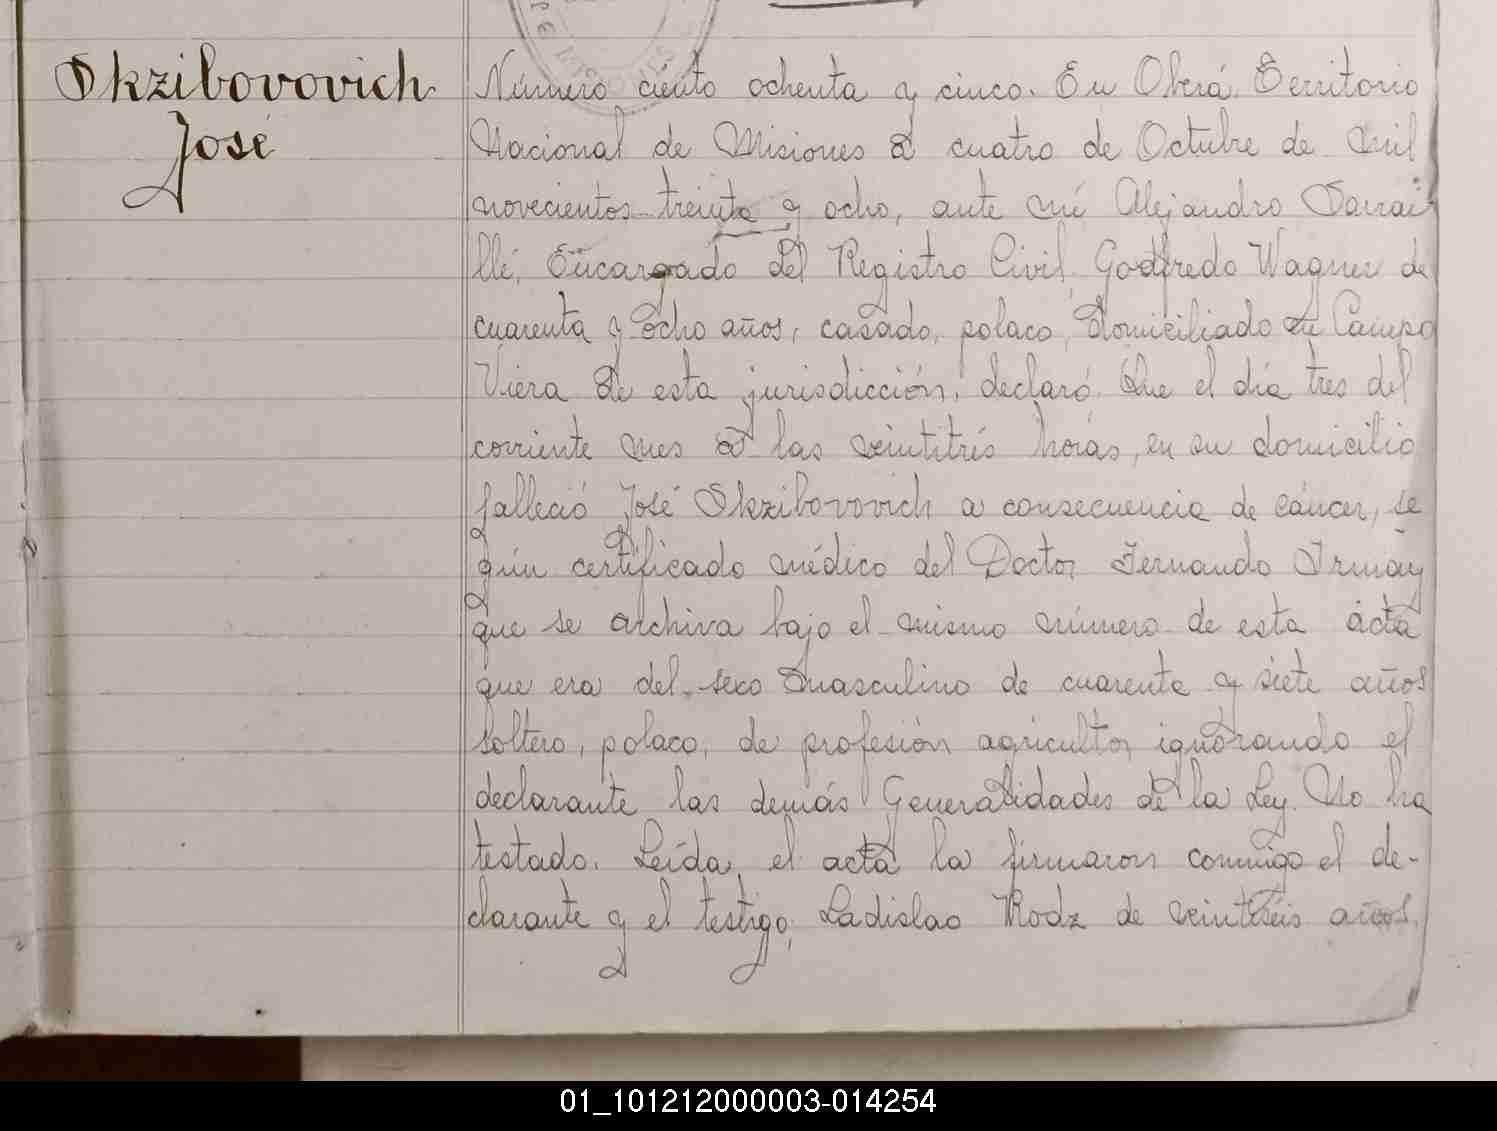 Skzibovovich
José
Número ciento ochenta y cinco. En Oberá, Territorio
Nacional de Misiones a cuatro de Octubre de mil
novecientos treinta y ocho, ante mí Alejandro Darrai
llé, Encargado del Registro Civil, Godfredo Wagner de
cuarenta y ocho años, casado, polaco, domiciliado en Campo
Viera de esta jurisdicción, declaró: Que el día tres del
corriente mes a las veintitrés horas, en su domicilio
falleció José Skzibovovich a consecuencia de cáncer, se
gún certificado médico del Doctor Fernando Irmay
que se archiva bajo el mismo número de esta acta
que era del sexo masculino de cuarenta y siete años
soltero, polaco, de profesión agricultor, ignorando el
declarante las demás Generalidades de la Ley. No ha
testado. Leída, el acta la firmaron conmigo el de-
clarante y el testigo, Ladislao Modz de veintiséis años,
01_101212000003-014254